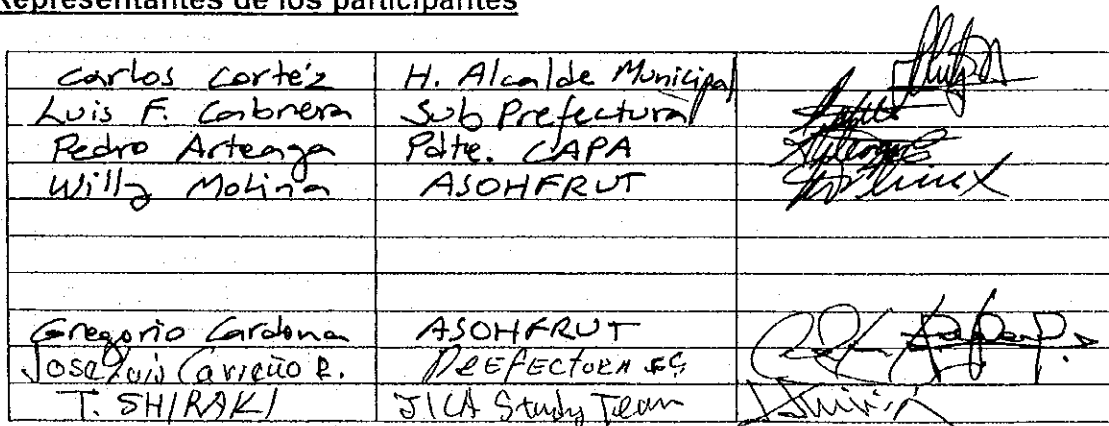 Representantes de los participantes
Carlos Cortéz H. Alcalde Municipal
Luis F. Cabrera Sub Prefectura
Pedro Arteaga Pdte. CAPA
Willy Molina ASOHFRUT
Gregorio Cardona ASOHFRUT
Jose Luis Cavieño R. PREFECTURA
T. SHIRAKI JICA Study Team